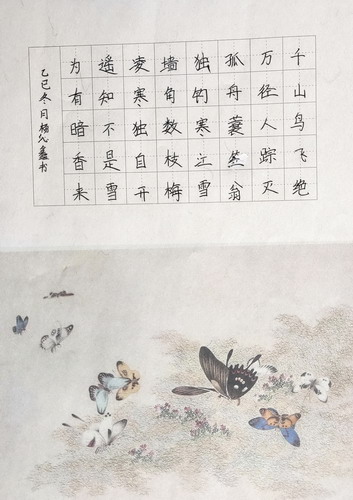 千山鸟飞绝
万径人踪灭
孤舟蓑笠翁
独钓寒江雪
墙角数枝梅
凌寒独自开
遥知不是雪
为有暗香来
乙巳冬月杨心鑫书